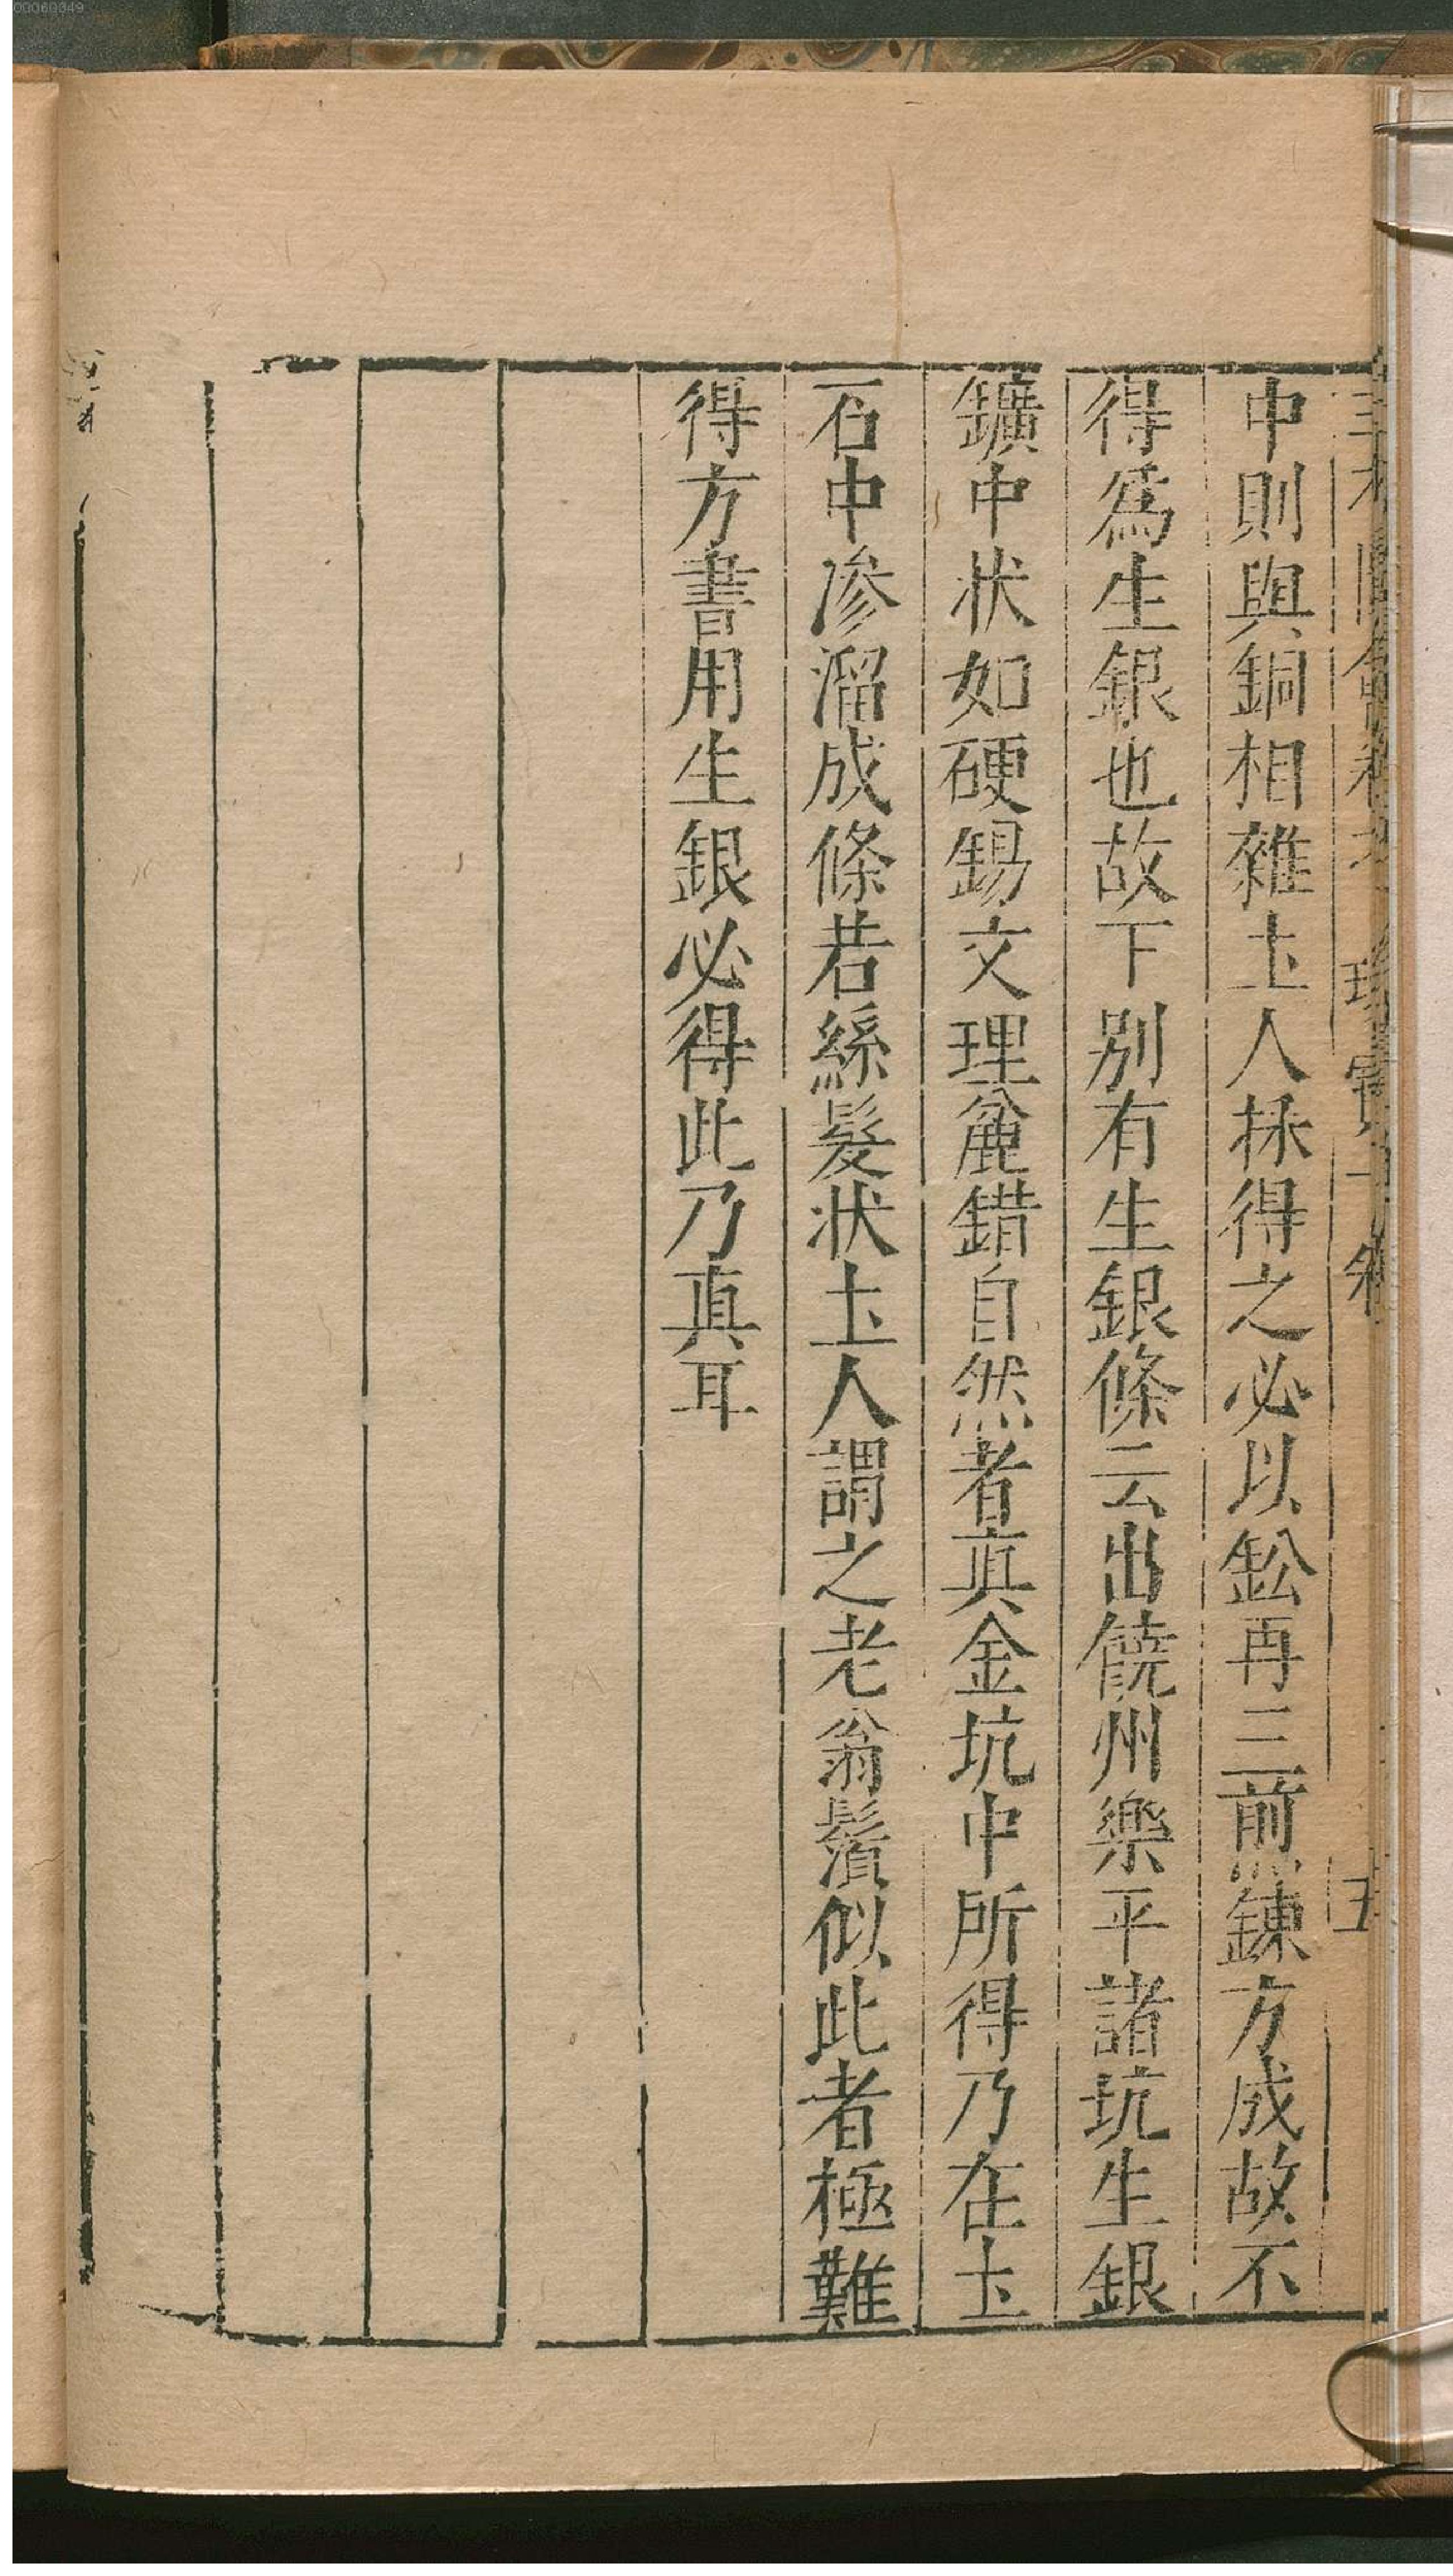 中則與銅相雜土人採得之必以鈆再三煎鍊方成故不
得爲生銀也故下别有生銀條云出饒州樂平諸坑生銀
鑛中状如硬錫文理麄錯自然者真金坑中所得乃在土
石中渗溜成條若絲髮状土人謂之老翁鬚似此者極難
得方書用生銀必得此乃真耳
00060049